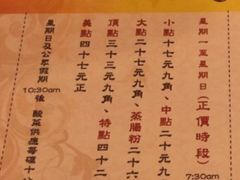 星期一至星期日(正價時段)
7:30am
小點十七元九角、中點二十
大點二十七元九角、蒸腸粉二十六
頂點三十三元九角、特點四十二
美點四十七元正
星期日及公眾假期
10:30am
後
酸菜供應每碟十